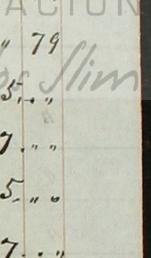 ACION
" 79
os Slim
5 " "
7 " "
5 " "
7 " "